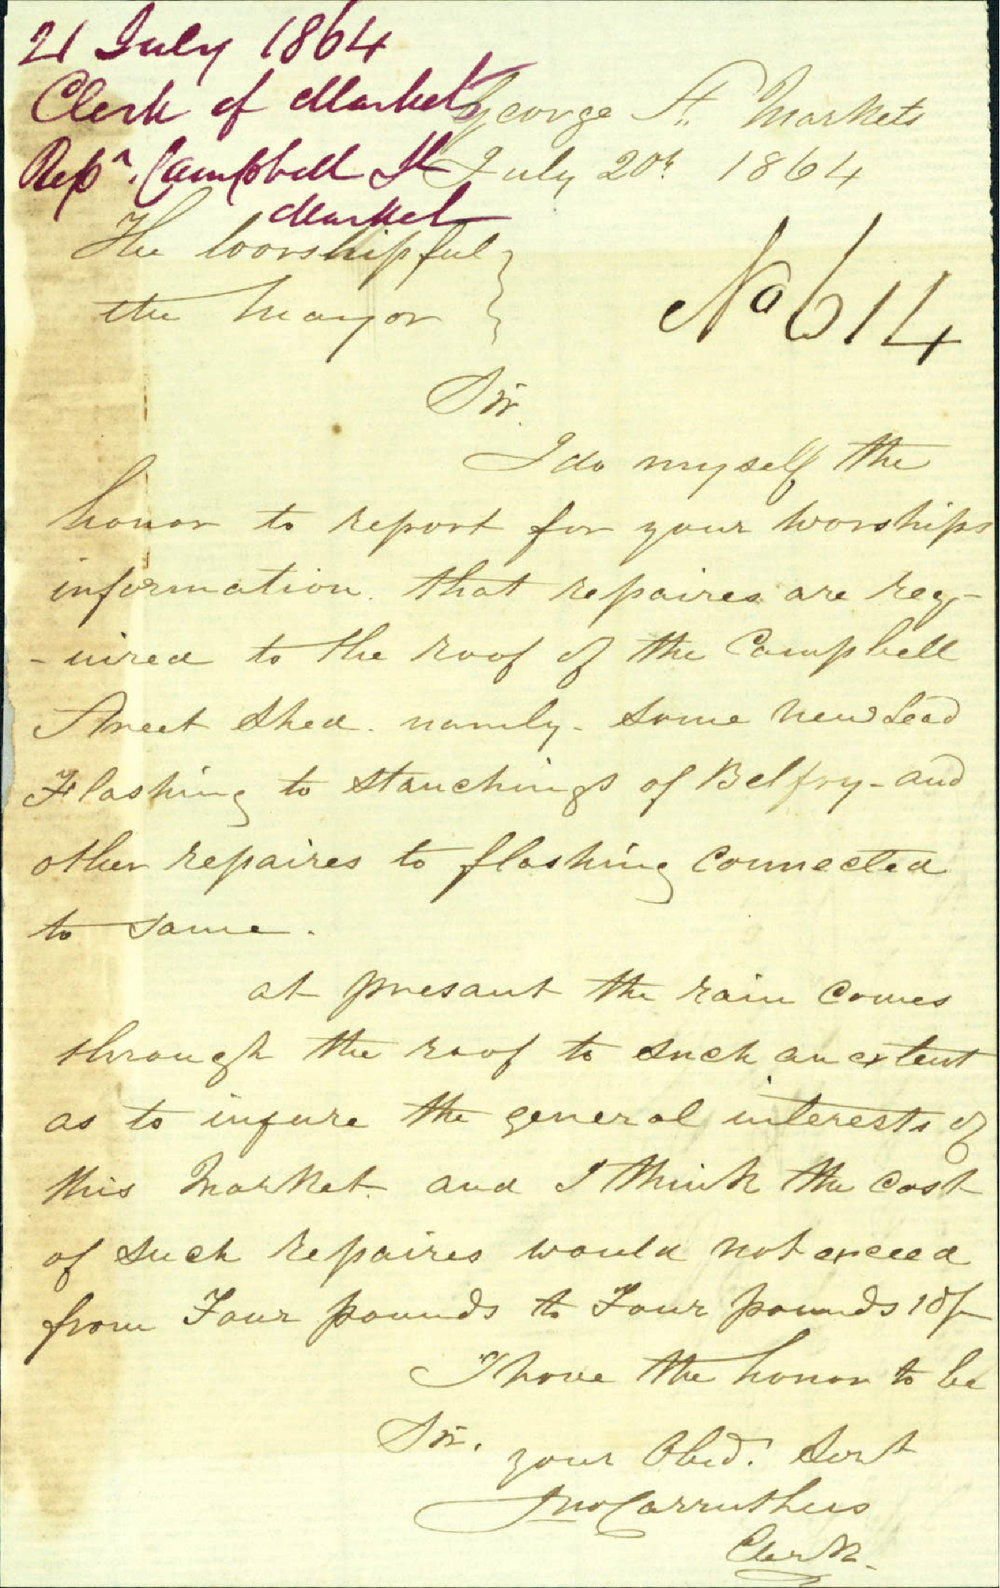 21 July 1864
Clerk of Markets
Repn. Campbell St
Market
George St. Markets
July 20th 1864
The Worshipful
the Mayor
No 614
Sir.
I do myself the
honor to report for your worships
information. that repaires are req-
-uired to the roof of the Campbell
Street Shed. namly. Some New Lead
Flashing to Stanchings of Belfry - and
other repaires to flashing Connected
to Same.
at presant the rain Comes
through the roof to Such an extent
as to injure the general interests of
this Market. and I think the Cost
of Such repaires would not exceed
from Four pounds to Four pounds 10/-
I have the honor to be
Sir.
your Obed. Servt
Jno Carruthers
Clerk.